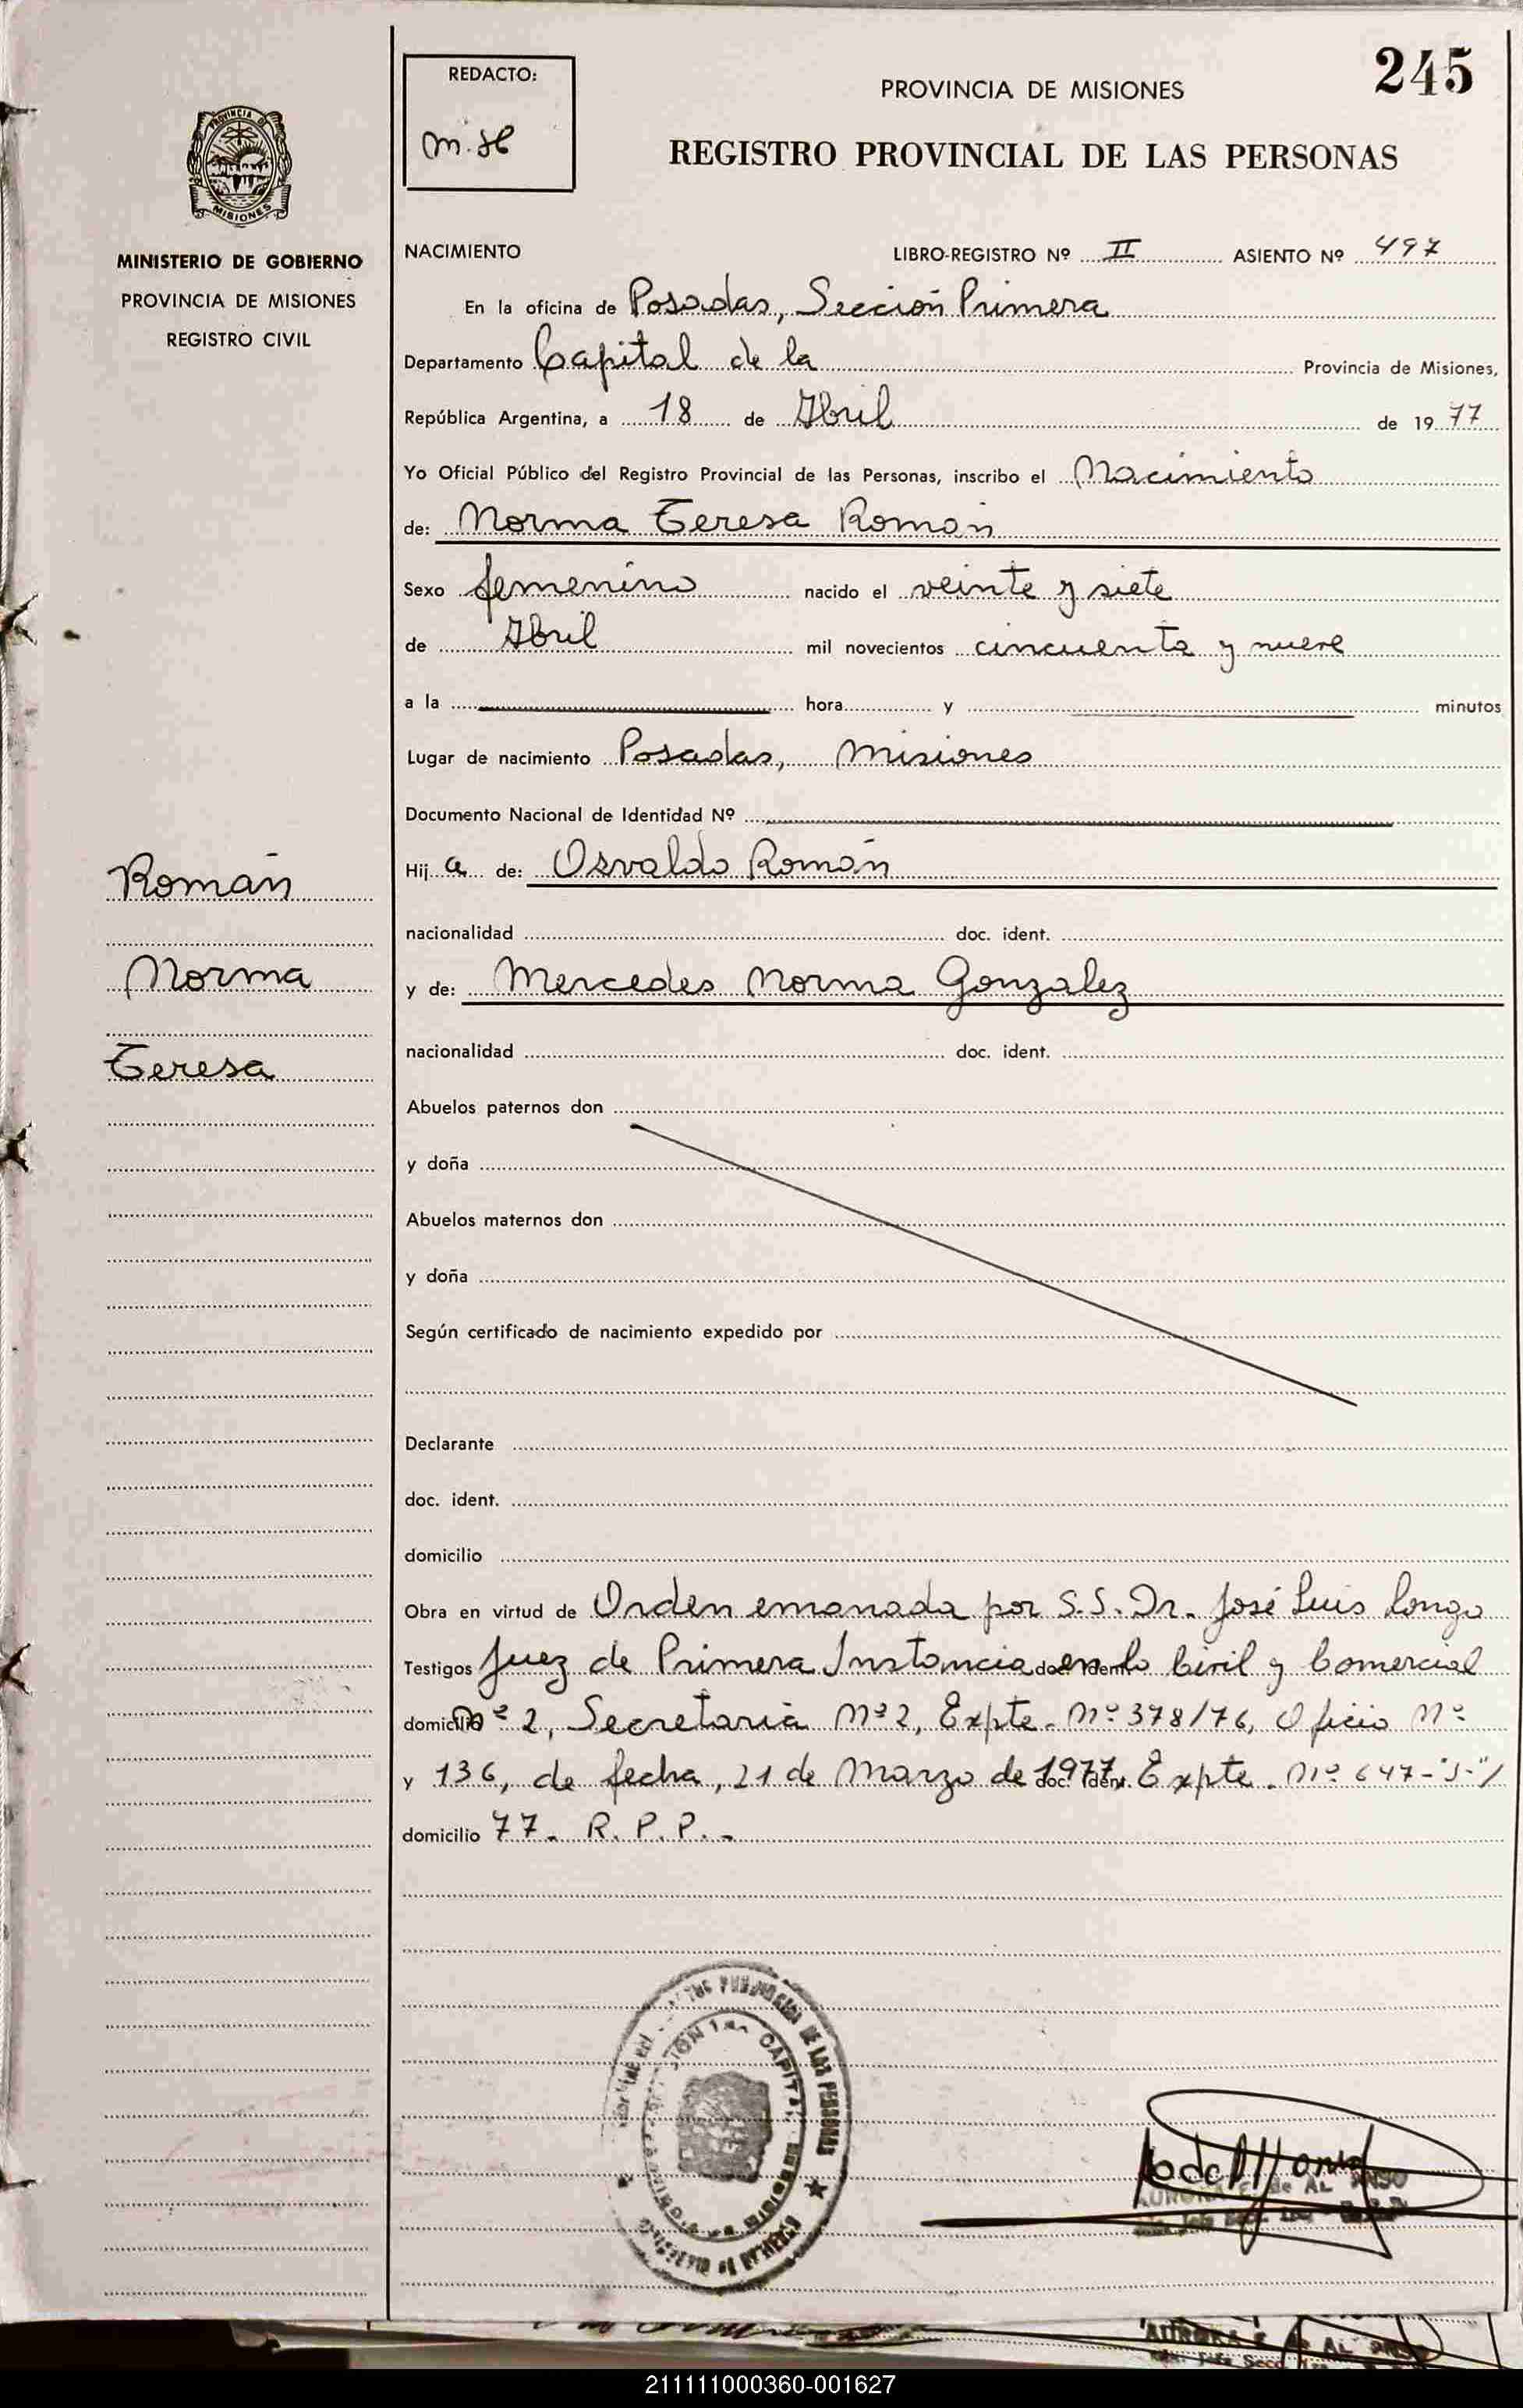 245
REDACTO:
PROVINCIA DE MISIONES
REGISTRO PROVINCIAL DE LAS PERSONAS
PROVINCIA DE
MISIONES
MINISTERIO DE GOBIERNO
PROVINCIA DE MISIONES
REGISTRO CIVIL
NACIMIENTO LIBRO-REGISTRO Nº II ASIENTO Nº 497
En la oficina de Posadas, Sección Primera
Departamento Capital de la Provincia de Misiones,
República Argentina, a 18 de Abril de 1977
Yo Oficial Público del Registro Provincial de las Personas, inscribo el Nacimiento
de: Norma Teresa Román
Sexo femenino nacido el veinte y siete
de Abril mil novecientos cincuenta y nueve
a la hora y minutos
Lugar de nacimiento Posadas, Misiones
Documento Nacional de Identidad Nº
Hij a de: Osvaldo Román
nacionalidad doc. ident.
y de: Mercedes Norma Gonzalez
nacionalidad doc. ident.
Abuelos paternos don
y doña
Abuelos maternos don
y doña
Según certificado de nacimiento expedido por
Declarante
doc. ident.
domicilio
Obra en virtud de Orden emanada por S.S. Dr. José Luis Longo
Testigos Juez de Primera Instancia doc. ident. en lo Civil y Comercial
domicilio Nº 2, Secretaría Nº 2, Expte. Nº 378/76, Oficio Nº
y 136, de fecha, 21 de Marzo de 1977, doc. ident. Expte. Nº 647-"J-"/
domicilio 77. R. P. P. -
Román
Norma
Teresa
DE LAS PERSONAS
CAPITAL
AURORA E. de AL
211111000360-001627